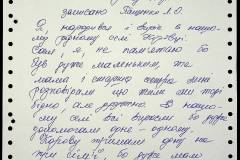 записано Пащенко Л.О.
Я, народився і виріс в нашо-
му рідному селі
Сам я, не памятаю бо
був дуже маленьким, те
мама і старша сестра мені
розповідали що жили ми тоді
бідно, але дружно. В нашо-
му селі всі вирили бо
допомагали одне-одному.
Корову тримали одну на
три сім'ї бо дуже мало